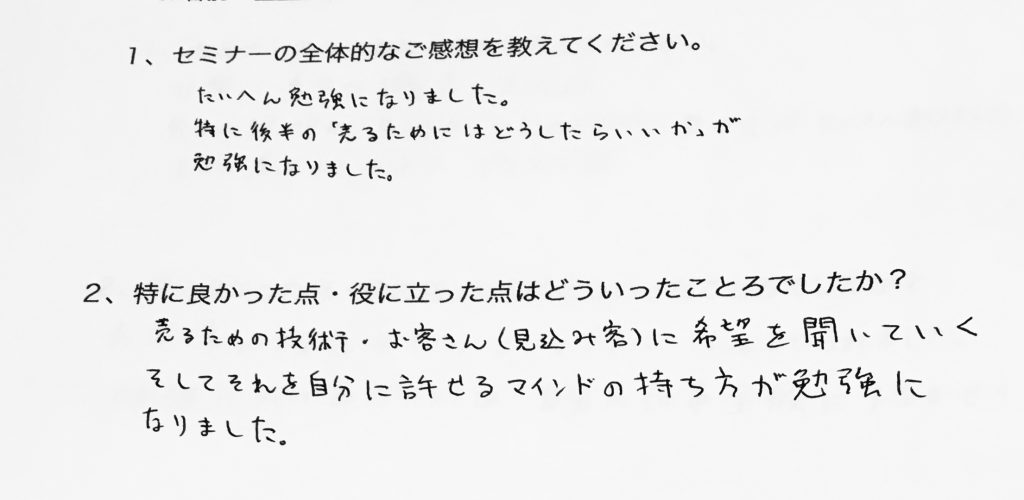 1、セミナーの全体的なご感想を教えてください。
たいへん勉強になりました。
特に後半の「売るためにはどうしたらいいか」が
勉強になりました。
2、特に良かった点・役に立った点はどういったことろでしたか？
売るための技術・お客さん(見込み客)に希望を聞いていく
そしてそれを自分に許せるマインドの持ち方が勉強に
なりました。